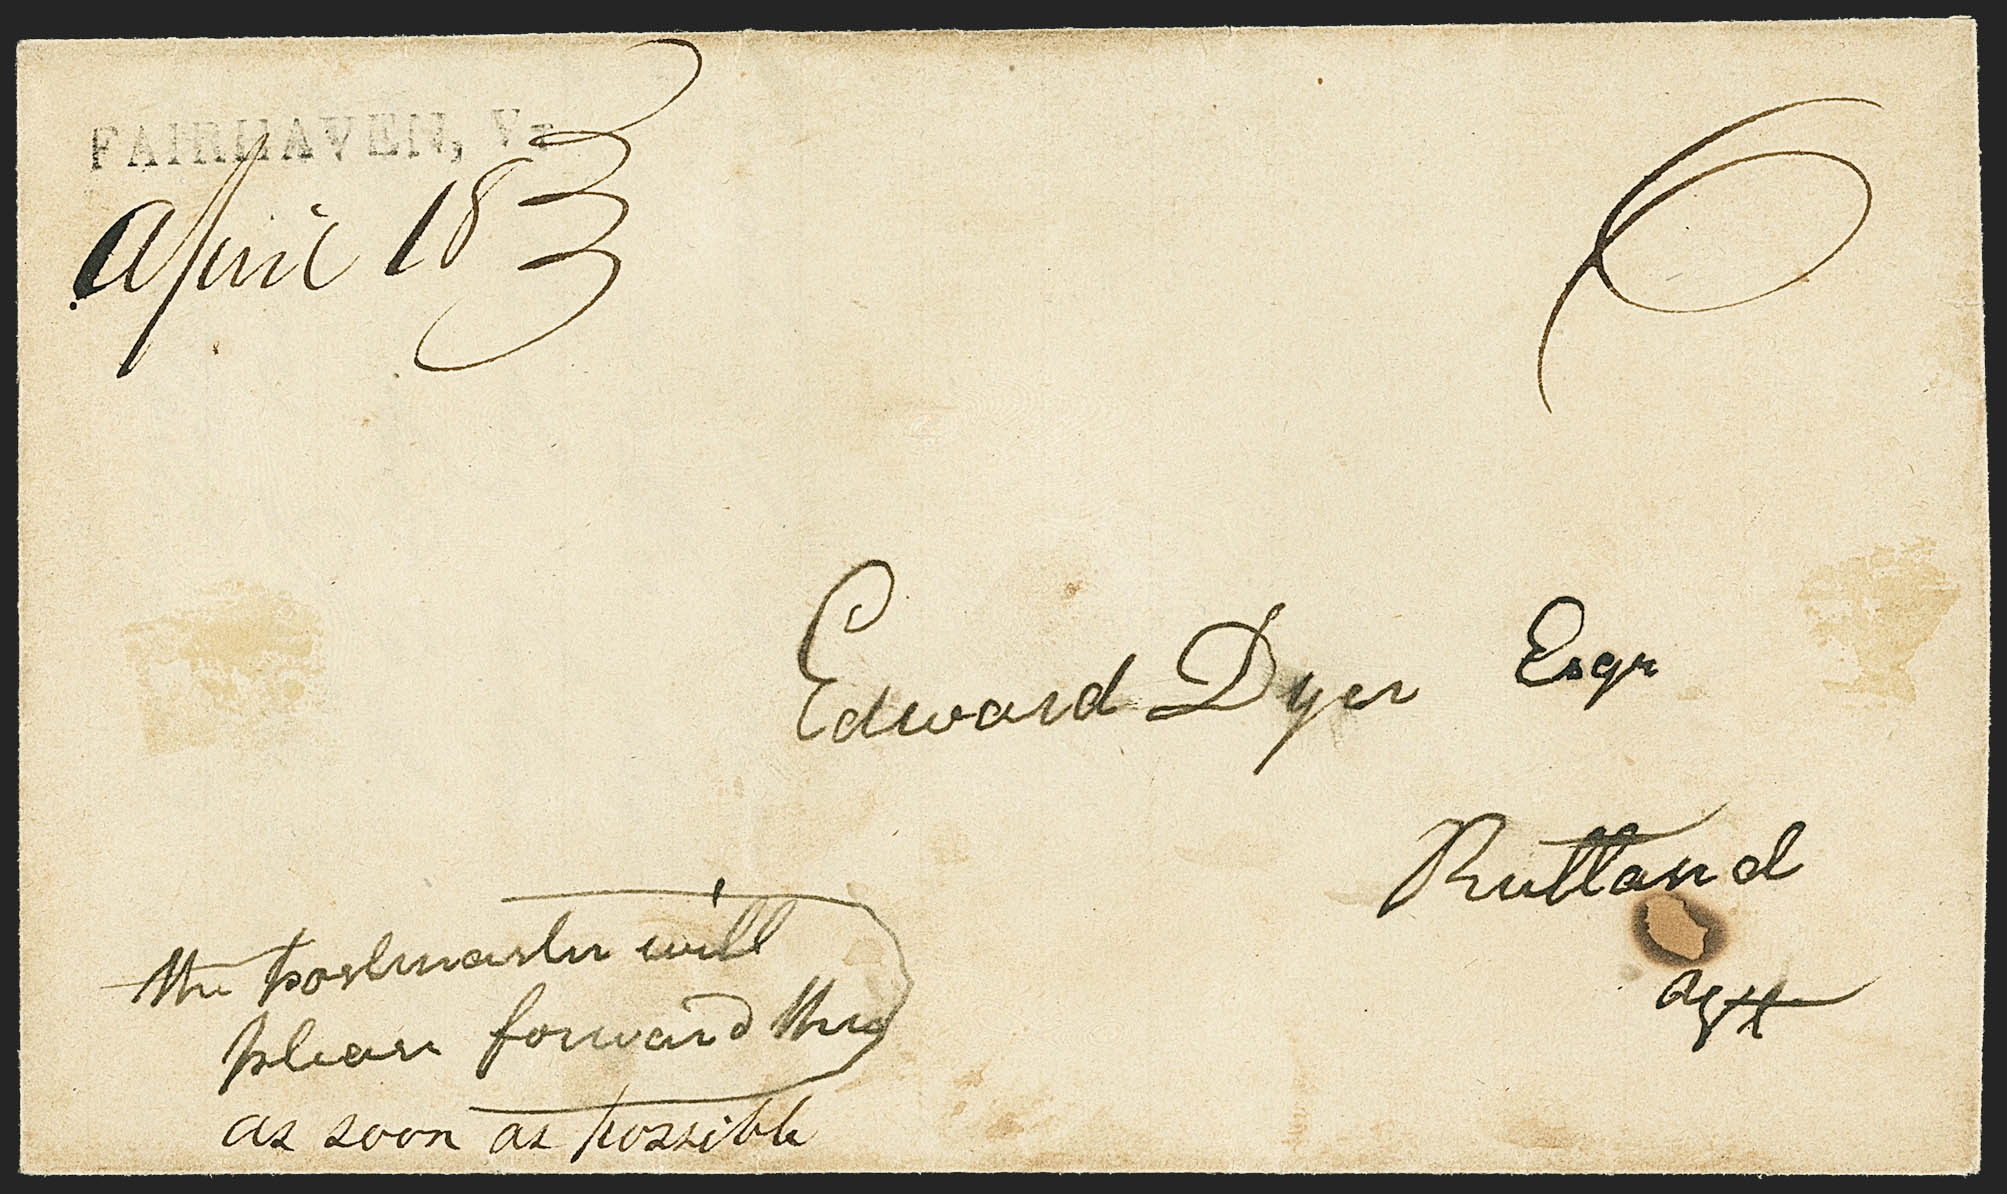 FAIRHAVEN, Vt
April 18
6
Edward Dyer Esqr
Rutland
the postmaster will
please forward this
as soon as possible